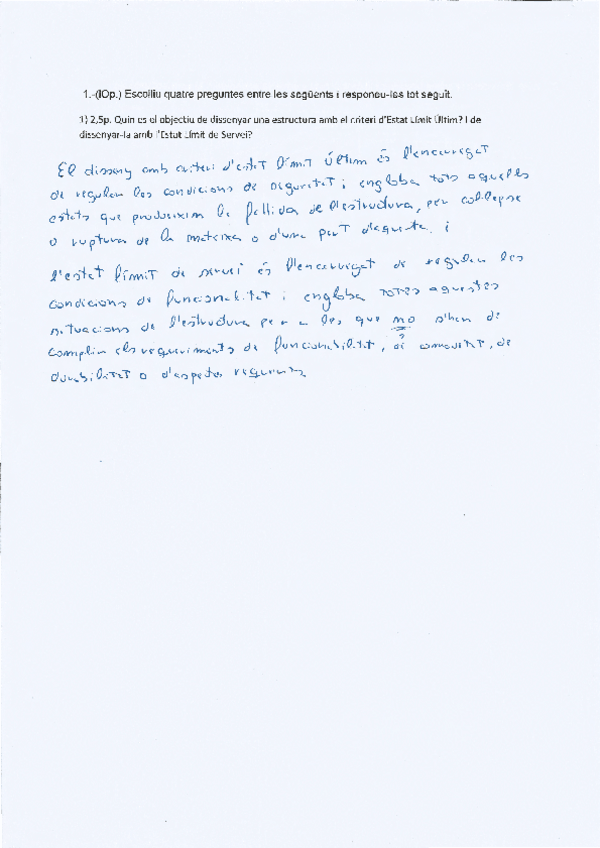 1.-(lOp.) Escolliu quatre preguntes entre les següents i responeu-les tot seguit.
1) 2,5p. Quin es el objectiu de dissenyar una estructura amb el criteri d'Estat Límit Últim? I de
dissenyar-la amb l'Estat Límit de Servei?
El disseny amb criteri d'estat límit Últim és l'encarregat
de regular les condicions de seguretat i engloba tots aquells
estats que produeixin la fallida de l'estructura, per col·lapse
o ruptura de la mateixa o d'una part d'aquesta. i
l'estat límit de servei és l'encarregat de regular les
condicions de funcionalitat i engloba totes aquestes
situacions de l'estructura per a les que no s'han de
?
complir els requeriments de funcionalitat, de comoditat, de
durabilitat o d'aspectes requerits